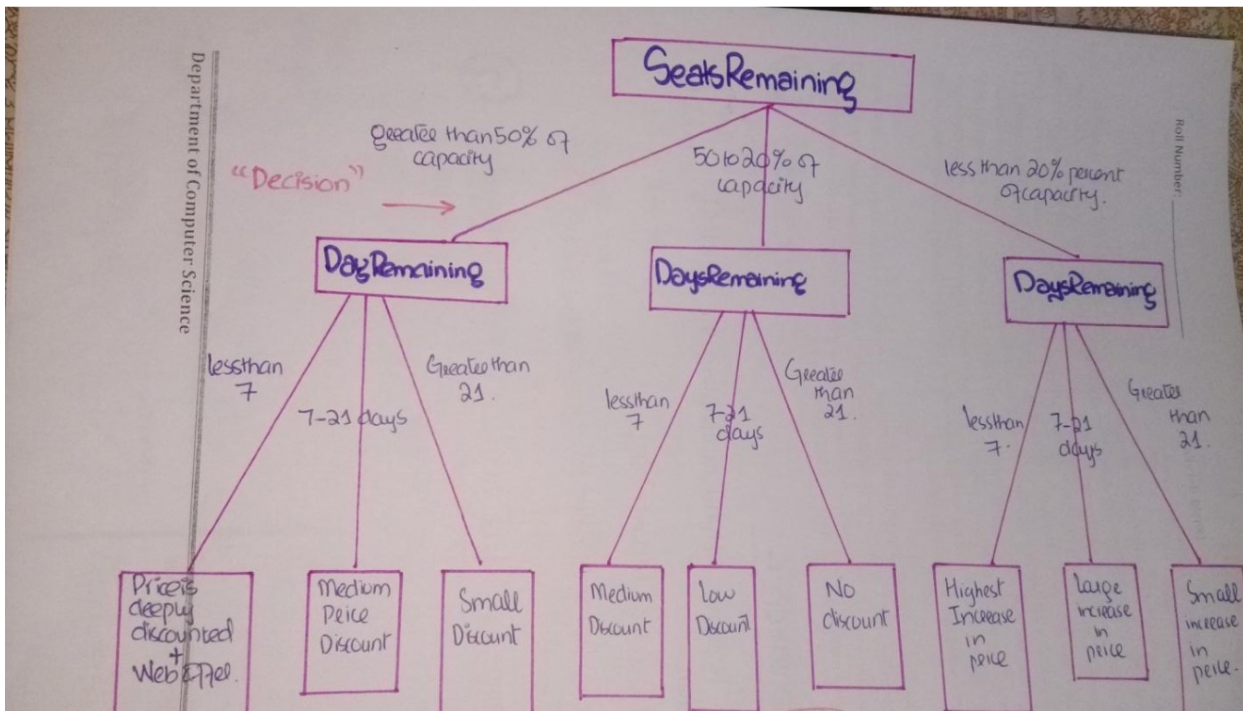 Department of Computer Science
Roll Number:
SeatsRemaining
greater than 50% of
capacity
"Decision"
50 to 20% of
capacity
less than 20% percent
of capacity.
DayRemaining
DaysRemaining
DaysRemaining
lessthan
7
7-21 days
Greater than
21.
lessthan
7
7-21
days
Greater
than
21.
lessthan
7.
7-21
days
Greater
than
21.
Price is
deeply
discounted
+
Web Offer.
Medium
Price
Discount
Small
Discount
Medium
Discount
Low
Discount
No
discount
Highest
Increase
in
price
Large
increase
in
price
Small
increase
in
price.